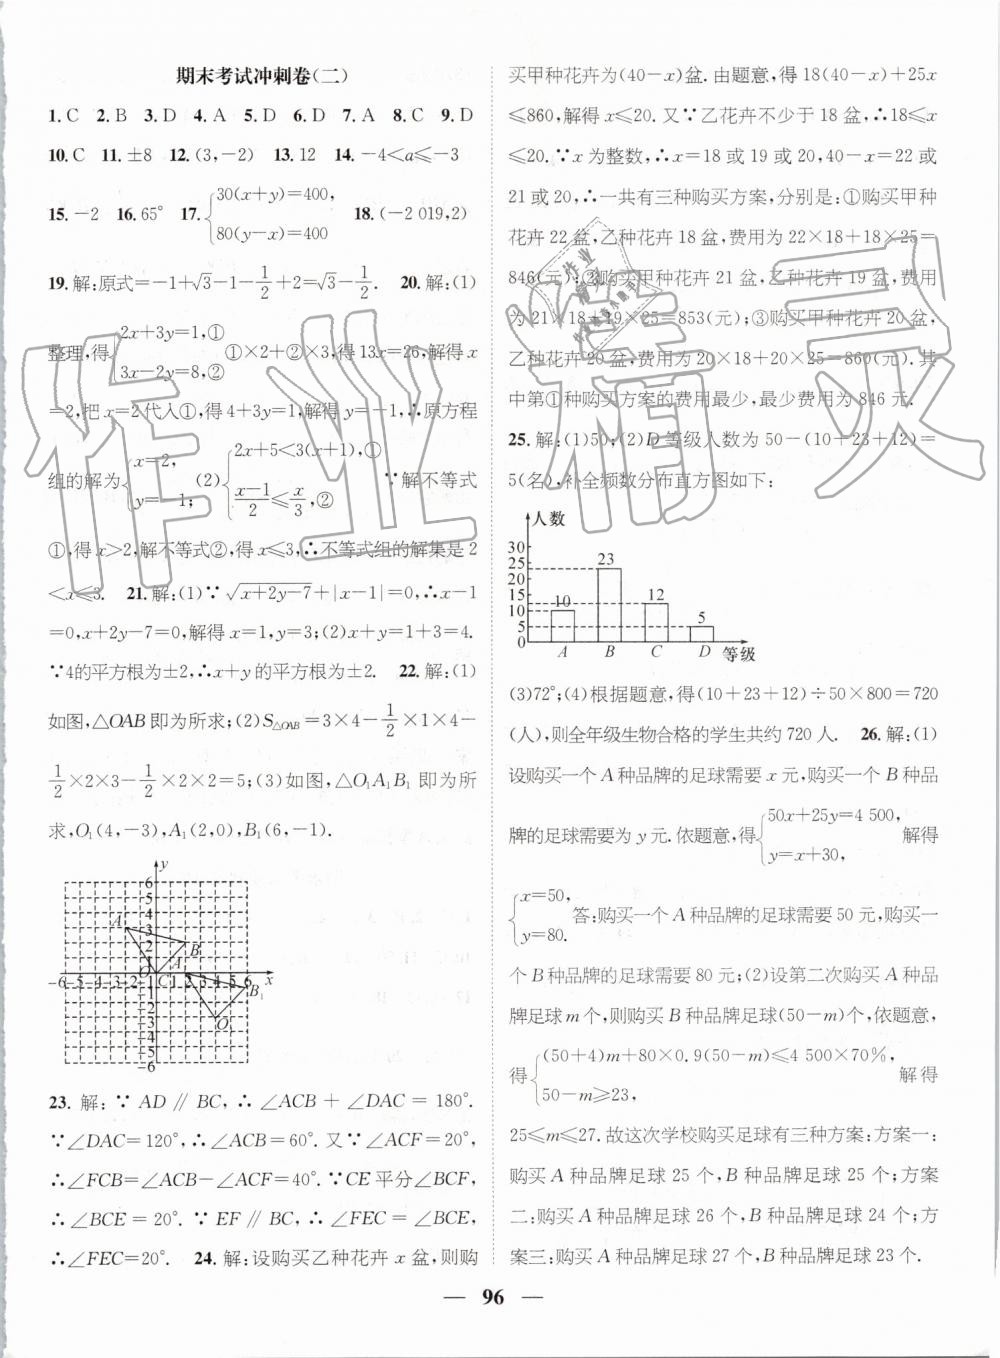 期末考试冲刺卷(二)
1.C 2.B 3.D 4.A 5.D 6.D 7.A 8.C 9.D
10.C 11.±8 12.(3,-2) 13.12 14.-4<a≤-3
15.-2 16.65° 17.{30(x+y)=400, 80(y-x)=400 18.(-2 019,2)
19.解:原式=-1+√3-1-1/2+2=√3-1/2. 20.解:(1)
整理,得{2x+3y=1,① 3x-2y=8,② ①×2+②×3,得13x=26,解得 x
=2,把 x=2代入①,得4+3y=1,解得 y=-1,∴原方程
组的解为{x=2, y=-1; (2){2x+5<3(x+1),① x-1/2≤x/3,② ∵解不等式
①,得 x>2,解不等式②,得 x≤3,∴不等式组的解集是 2
<x≤3. 21.解:(1)∵√x+2y-7+|x-1|=0,∴x-1
=0,x+2y-7=0,解得 x=1,y=3;(2)x+y=1+3=4.
∵4的平方根为±2,∴x+y的平方根为±2. 22.解:(1)
如图,△OAB 即为所求;(2)S△OAB=3×4-1/2×1×4-
1/2×2×3-1/2×2×2=5;(3)如图,△O₁A₁B₁ 即为所
求,O₁(4,-3),A₁(2,0),B₁(6,-1).
y
6
5
4
A 3
2 B
1 A
-6-5-4-3-2-1 O C 1 2 3 4 5 6 x
-1 B₁
-2
-3 O₁
-4
-5
-6
23.解:∵AD∥BC,∴∠ACB+∠DAC=180°.
∵∠DAC=120°,∴∠ACB=60°.又∵∠ACF=20°,
∴∠FCB=∠ACB-∠ACF=40°.∵CE平分∠BCF,
∴∠BCE=20°.∵EF∥BC,∴∠FEC=∠BCE,
∴∠FEC=20°. 24.解:设购买乙种花卉 x 盆,则购
买甲种花卉为(40-x)盆.由题意,得18(40-x)+25x
≤860,解得 x≤20.又∵乙花卉不少于18盆,∴18≤x
≤20.∵x为整数,∴x=18或19或20,40-x=22或
21或20,∴一共有三种购买方案,分别是:①购买甲种
花卉22盆,乙种花卉18盆,费用为22×18+18×25=
846(元);②购买甲种花卉21盆,乙种花卉19盆,费用
为21×18+19×25=853(元);③购买甲种花卉20盆,
乙种花卉20盆,费用为20×18+20×25=860(元).其
中第①种购买方案的费用最少,最少费用为846元.
25.解:(1)50;(2)D等级人数为50-(10+23+12)=
5(名),补全频数分布直方图如下:
人数
30
25
20
15
10
5
0
10 23 12 5
A B C D 等级
(3)72°;(4)根据题意,得(10+23+12)÷50×800=720
(人),则全年级生物合格的学生共约720人. 26.解:(1)
设购买一个A种品牌的足球需要x元,购买一个B种品
牌的足球需要为y元.依题意,得{50x+25y=4 500, y=x+30, 解得
{x=50, y=80. 答:购买一个A种品牌的足球需要50元,购买一
个B种品牌的足球需要80元;(2)设第二次购买A种品
牌足球m个,则购买B种品牌足球(50-m)个,依题意,
得{(50+4)m+80×0.9(50-m)≤4 500×70%, 50-m≥23, 解得
25≤m≤27.故这次学校购买足球有三种方案:方案一:
购买A种品牌足球25个,B种品牌足球25个;方案
二:购买A种品牌足球26个,B种品牌足球24个;方
案三:购买A种品牌足球27个,B种品牌足球23个.
— 96 —
作业精灵